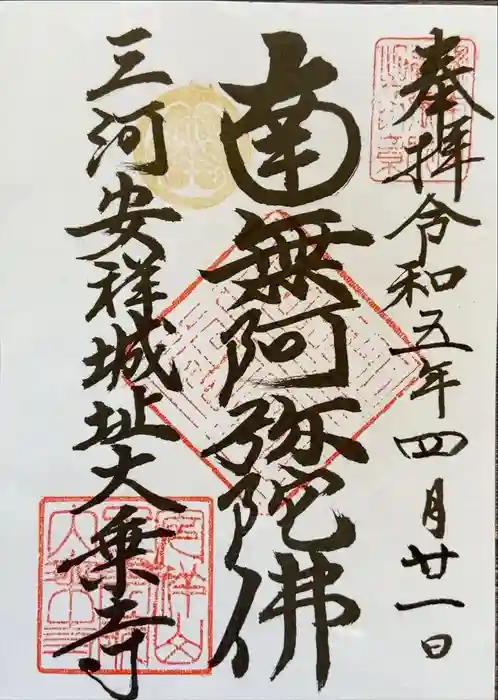 奉拝令和五年四月廿一日
南無阿弥陀佛
三河安祥城址大乗寺